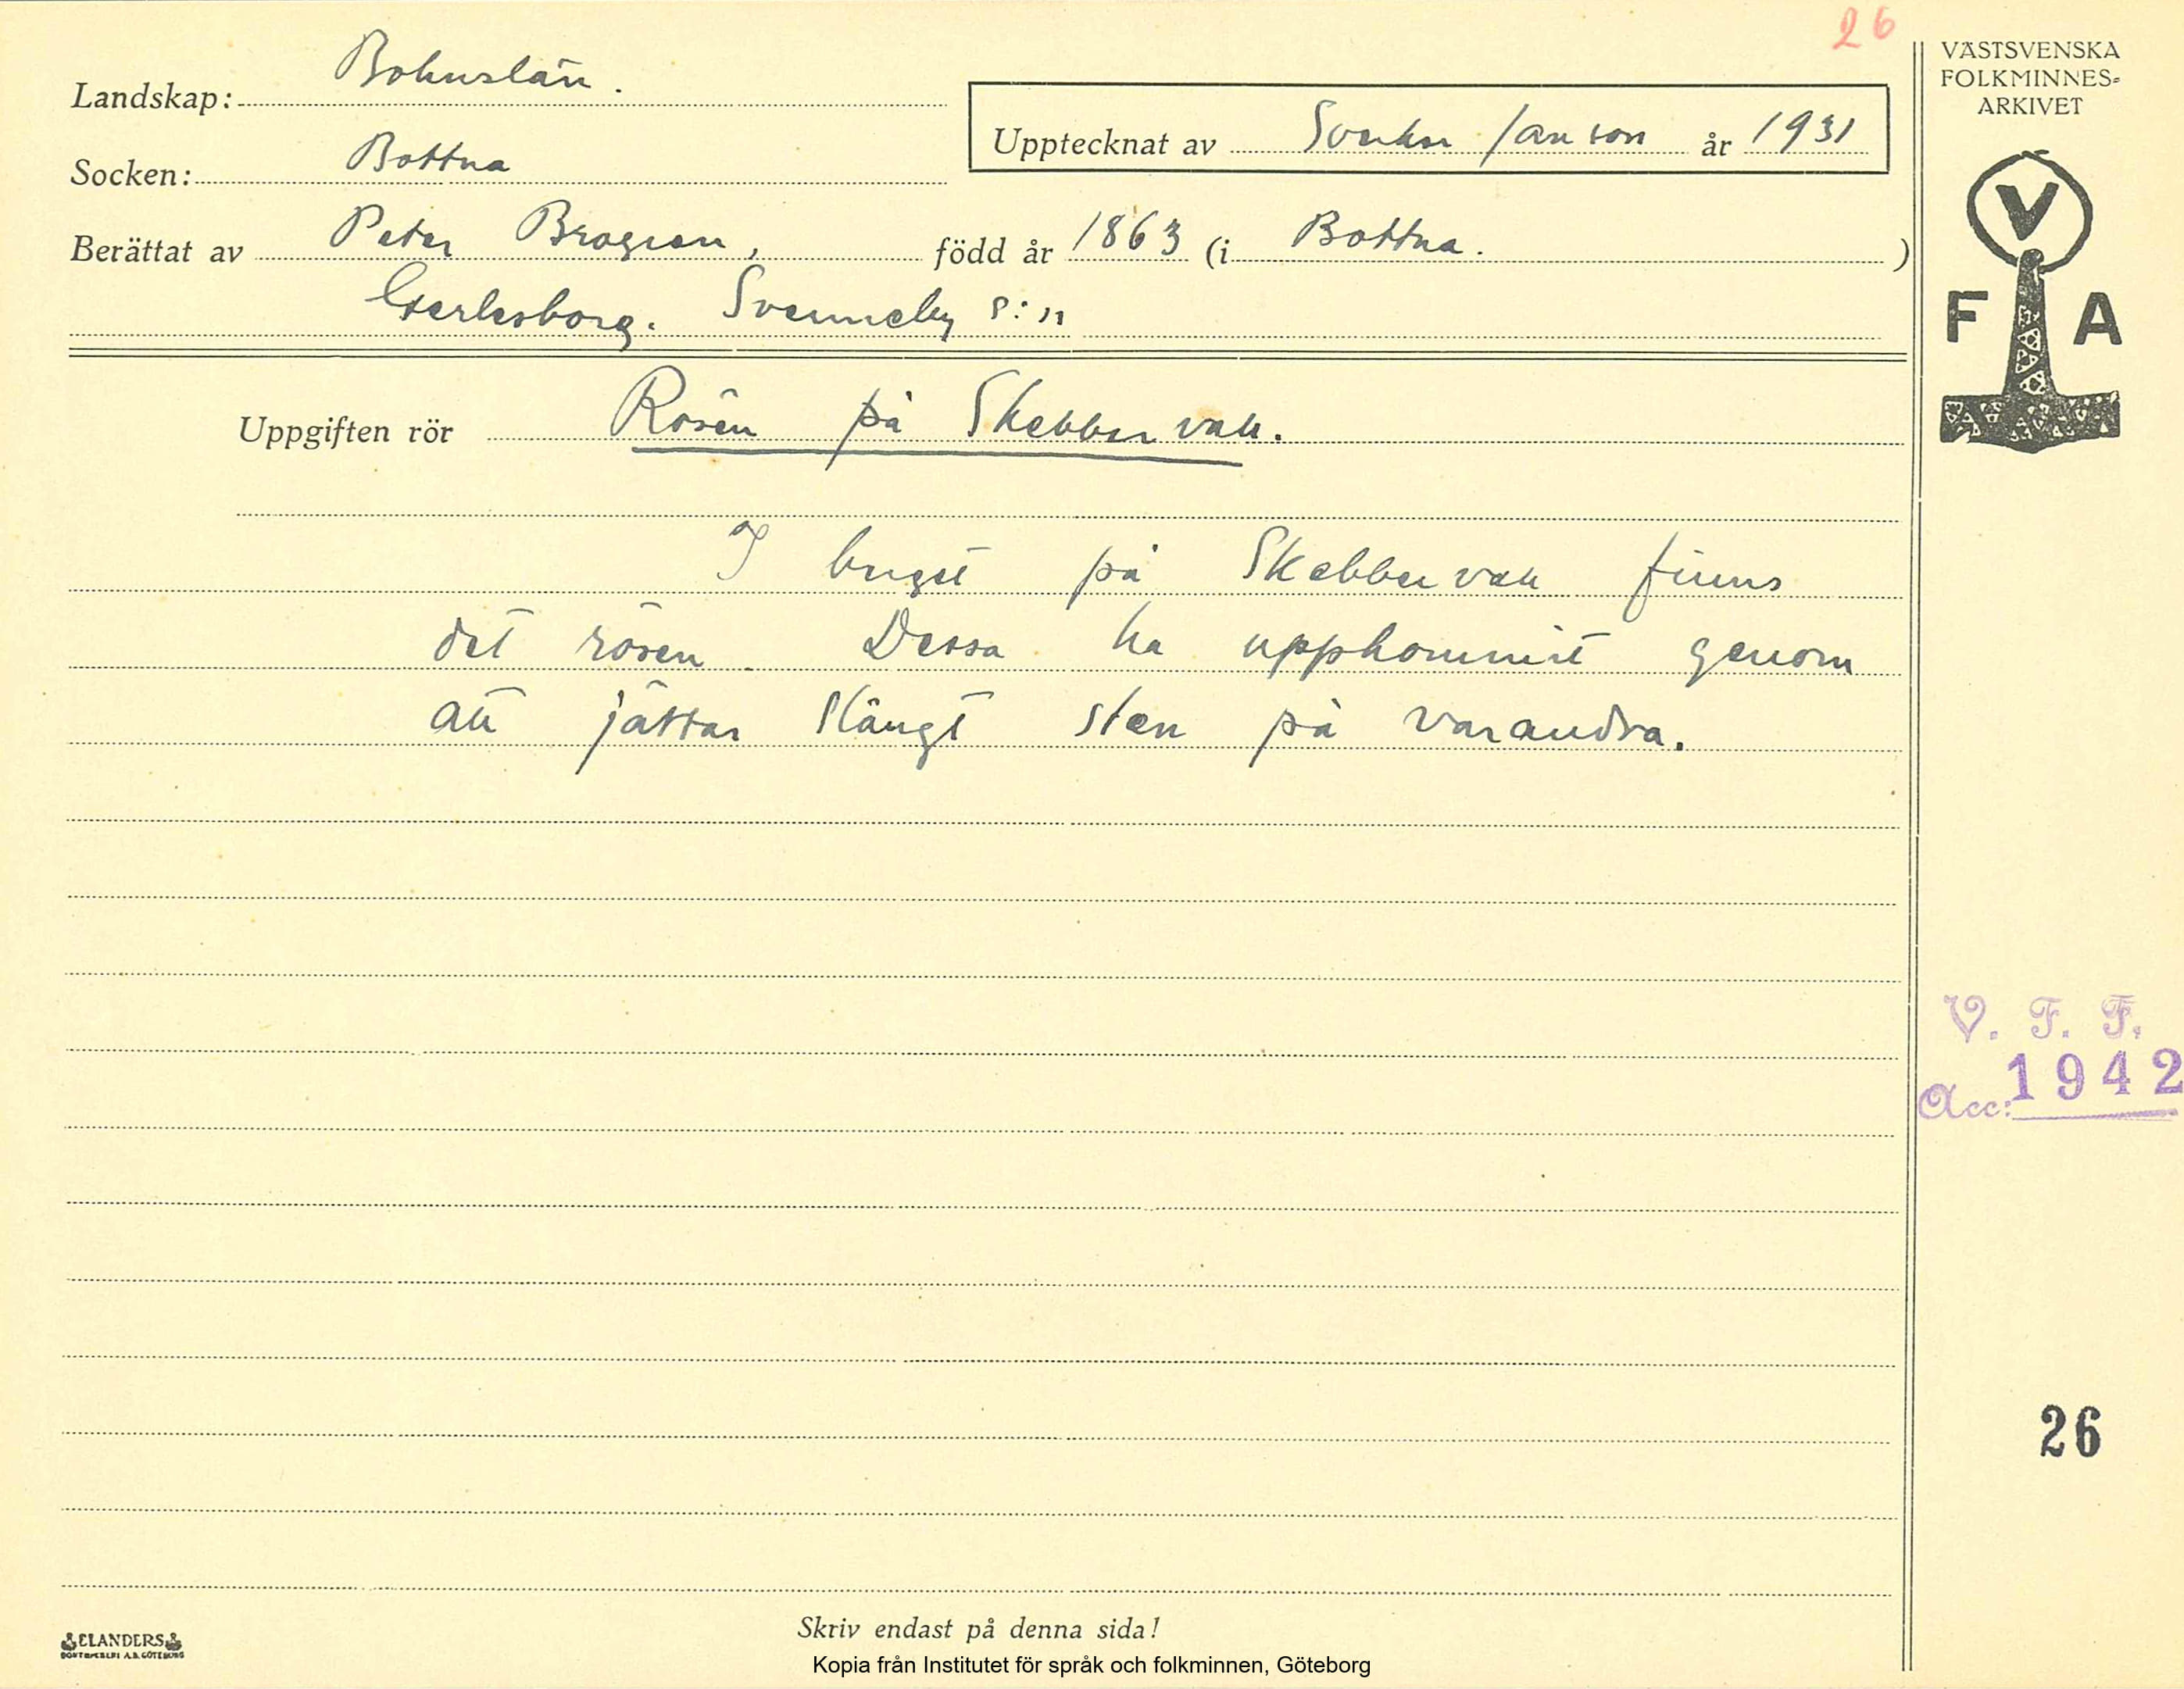 26
Landskap: Bohuslän.
Socken: Bottna
Upptecknat av Sverker Janson år 1931
Berättat av Peter Brogren, född år 1863 (i Bottna.)
Gerlesborg. Svenneby s:n
VÄSTSVENSKA
FOLKMINNES=
ARKIVET
V
F A
Uppgiften rör Rösen på Skebbervall.
I berget på Skebbervall finns
det rösen. Dessa ha uppkommit genom
att jättar slängt sten på varandra.
V. F. F.
Acc: 1942
26
Skriv endast på denna sida!
ELANDERS
BOKTRYCKERI A.B. GÖTEBORG
Kopia från Institutet för språk och folkminnen, Göteborg